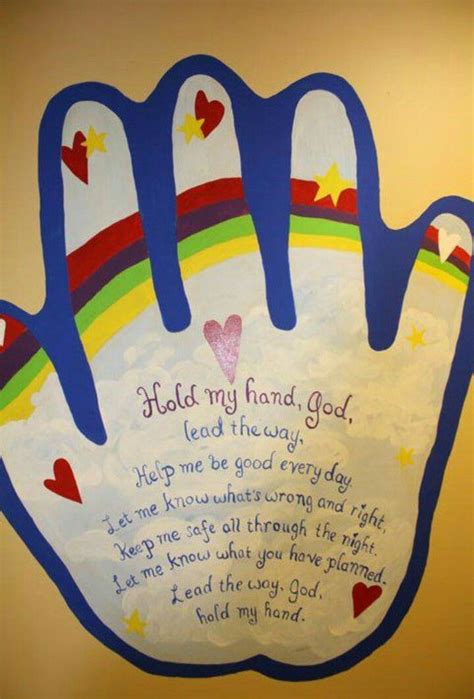 Hold my hand, God,
lead the way,
Help me be good every day.
Let me know what's wrong and right,
Keep me safe all through the night.
Let me know what you have planned.
Lead the way, God,
hold my hand.